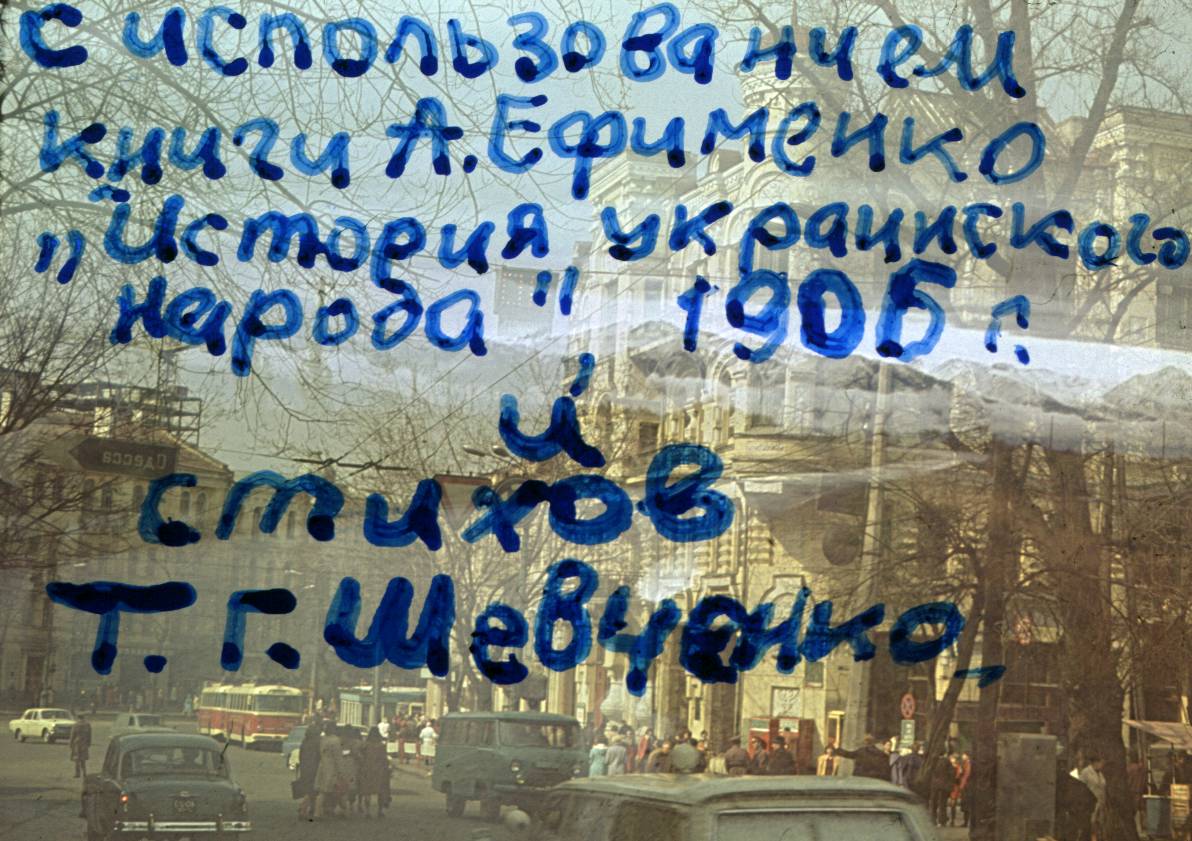 с использованием
книги А.Ефименко
„История украинского
народа" 1905 г.
и
стихов
Т.Г.Шевченко
Одесса